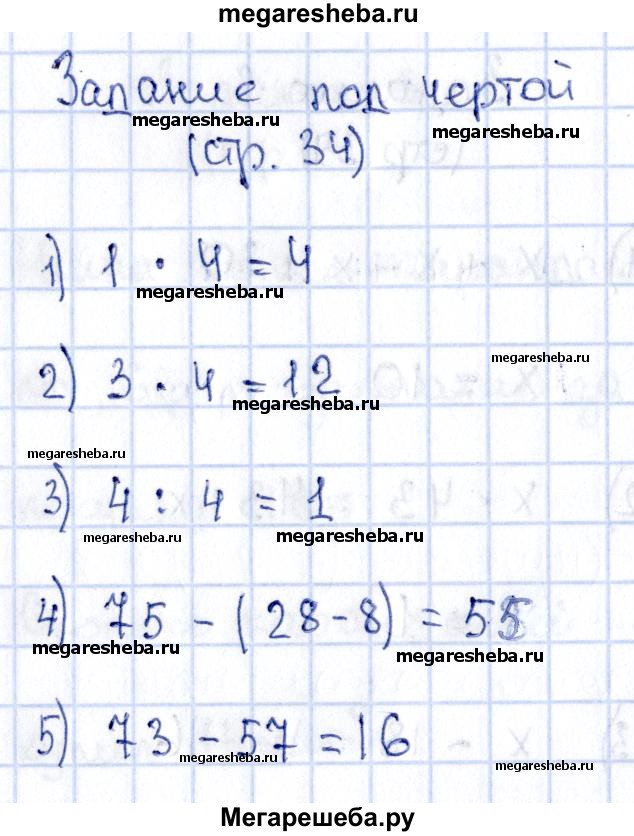 megaresheba.ru
Задание под чертой
megaresheba.ru
megaresheba.ru
(стр. 34)
1) 1 · 4 = 4
megaresheba.ru
megaresheba.ru
2) 3 · 4 = 12
megaresheba.ru
megaresheba.ru
3) 4 : 4 = 1
megaresheba.ru
megaresheba.ru
4) 75 - (28 - 8) = 55
megaresheba.ru
megaresheba.ru
5) 73 - 57 = 16
megaresheba.ru
megaresheba.ru
Мегарешеба.ру